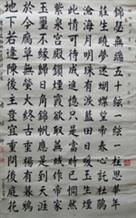 錦瑟無端五十絃一絃一柱思華年
莊生曉夢迷蝴蝶望帝春心託杜鵑
滄海月明珠有淚藍田日暖玉生煙
此情可待成追憶只是當時已惘然
紫泉宮殿鎖煙霞欲取蕪城作帝家
玉璽不緣歸日角錦帆應是到天涯
於今腐草無螢火終古垂楊有暮鴉
地下若逢陳後主豈宜重問後庭花